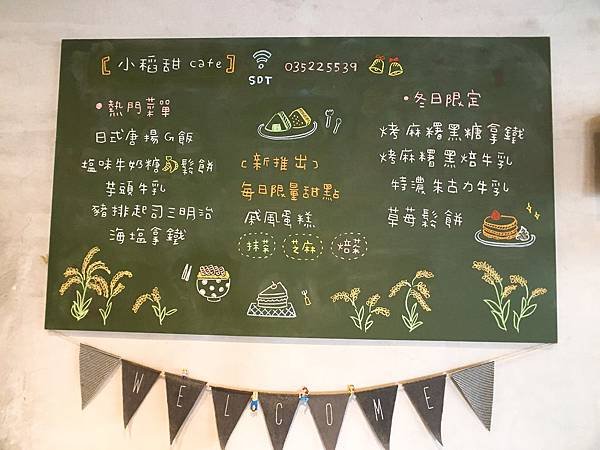 [小稻甜 cafe] SDT 035225539
熱門菜單
日式唐揚G飯
塩味牛奶糖鬆餅
芋頭牛乳
豬排起司三明治
海塩拿鐵
(新推出)
每日限量甜點
戚風蛋糕
抹茶 芝麻 焙茶
冬日限定
烤麻糬黑糖拿鐵
烤麻糬黑焙牛乳
特濃朱古力牛乳
草莓鬆餅
WELCOME